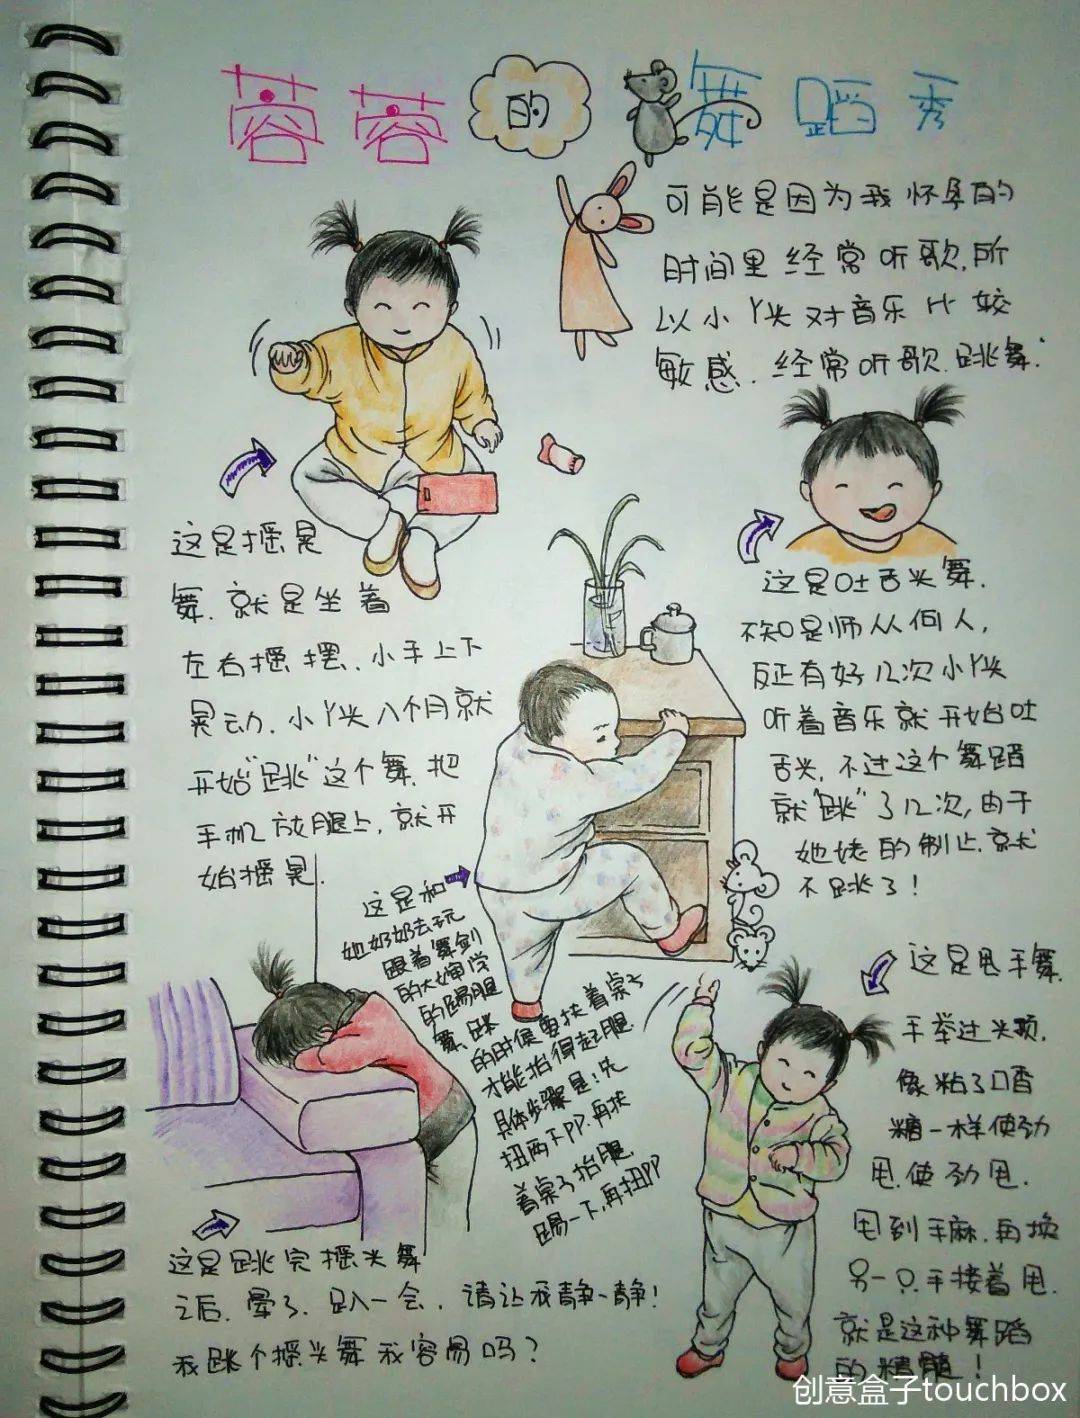 蓉蓉的舞蹈秀
可能是因为我怀孕的
时间里经常听歌,所
以小丫头对音乐比较
敏感.经常听歌.跳舞.
这是摇晃
舞.就是坐着
左右摇摆.小手上下
晃动.小丫头八个月就
开始"跳"这个舞.把
手机放腿上,就开
始摇晃.
这是吐舌头舞.
不知是师从何人,
反正有好几次小丫头
听着音乐就开始吐
舌头,不过这个舞蹈
就"跳"了几次,由于
她姥的制止就
不跳了!
这是和
她奶奶去玩
跟着舞剑
的大婶学
的踢腿
舞、跳
的时候要扶着桌子
才能抬得起腿
具体步骤是:先
扭两下PP.再扶
着桌子抬腿
踢一下,再扭PP
这是甩手舞.
手举过头顶.
像粘了口香
糖一样使劲
甩.使劲甩.
甩到手麻.再换
另一只手接着甩.
就是这种舞蹈
的精髓!
这是跳完摇头舞
之后.晕了.趴一会.请让我静一静!
我跳个摇头舞我容易吗?
创意盒子touchbox